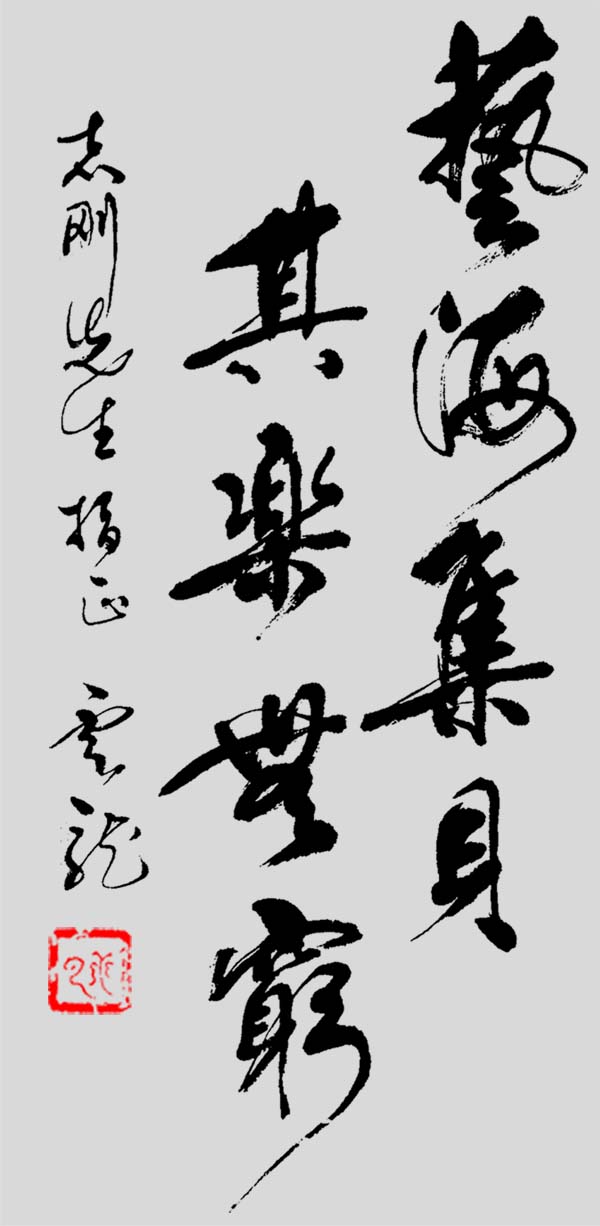 藝海集貝
其樂無窮
志刚先生指正 雲龍